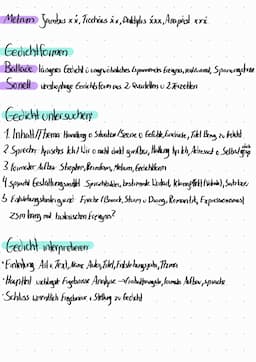 Metrum Jambus xx́, Trochäus x́x, Daktylus x́xx, Anapäst xxx́
Gedichtformen
Ballade längeres Gedicht ü ungewöhnliches spannendes Ereignis,
Sonett vierstrophige Gedichtsform aus 2 Quartetten u 2 Terzetten
Gedicht untersuchen
1. Inhalt/Thema Handlung o Situation/Szene o Gefühle, Titel Bezug zu Gedicht
2. Sprecher lyrisches Ich/ Wir o nicht direkt greifbar, Haltung lyr. Ich, Adressat o Selbstgespräch
3. formaler Aufbau Strophen, Reimform, Metrum, Gedichtform
4. sprachl Gestaltungsmittel Sprachbilder, bestimmte Wortwahl, Klang, Satzbau
5. Entstehungshintergrund Epoche (Barock, Sturm u Drang, Romantik, Expressionismus)
ZSM hang mit historischen Ereignis?
Gedicht interpretieren
• Einleitung Art v Text, Name Autor, Titel, Entstehungsjahr, Thema
• Hauptteil wichtigste Ergebnisse Analyse → Inhaltsangabe, formaler Aufbau, Sprache
• Schluss wesentlich Ergebnisse, Stellung zu Gedicht